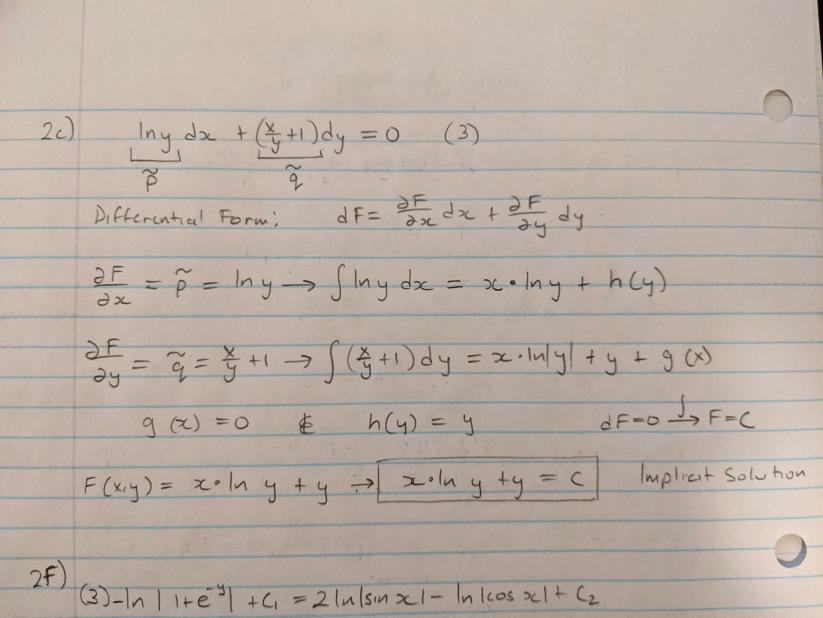 2c) ln y dx + (x/y + 1) dy = 0 (3)
p̃ q̃
Differential Form: dF = ∂F/∂x dx + ∂F/∂y dy
∂F/∂x = p̃ = ln y → ∫ ln y dx = x • ln y + h(y)
∂F/∂y = q̃ = x/y + 1 → ∫ (x/y + 1) dy = x • ln|y| + y + g(x)
g(x) = 0 & h(y) = y dF = 0 →∫ F = C
F(x,y) = x • ln y + y → x • ln y + y = C Implicit Solution
2F)
(3) -ln |1+e^-y| + C₁ = 2 ln|sin x| - ln|cos x| + C₂